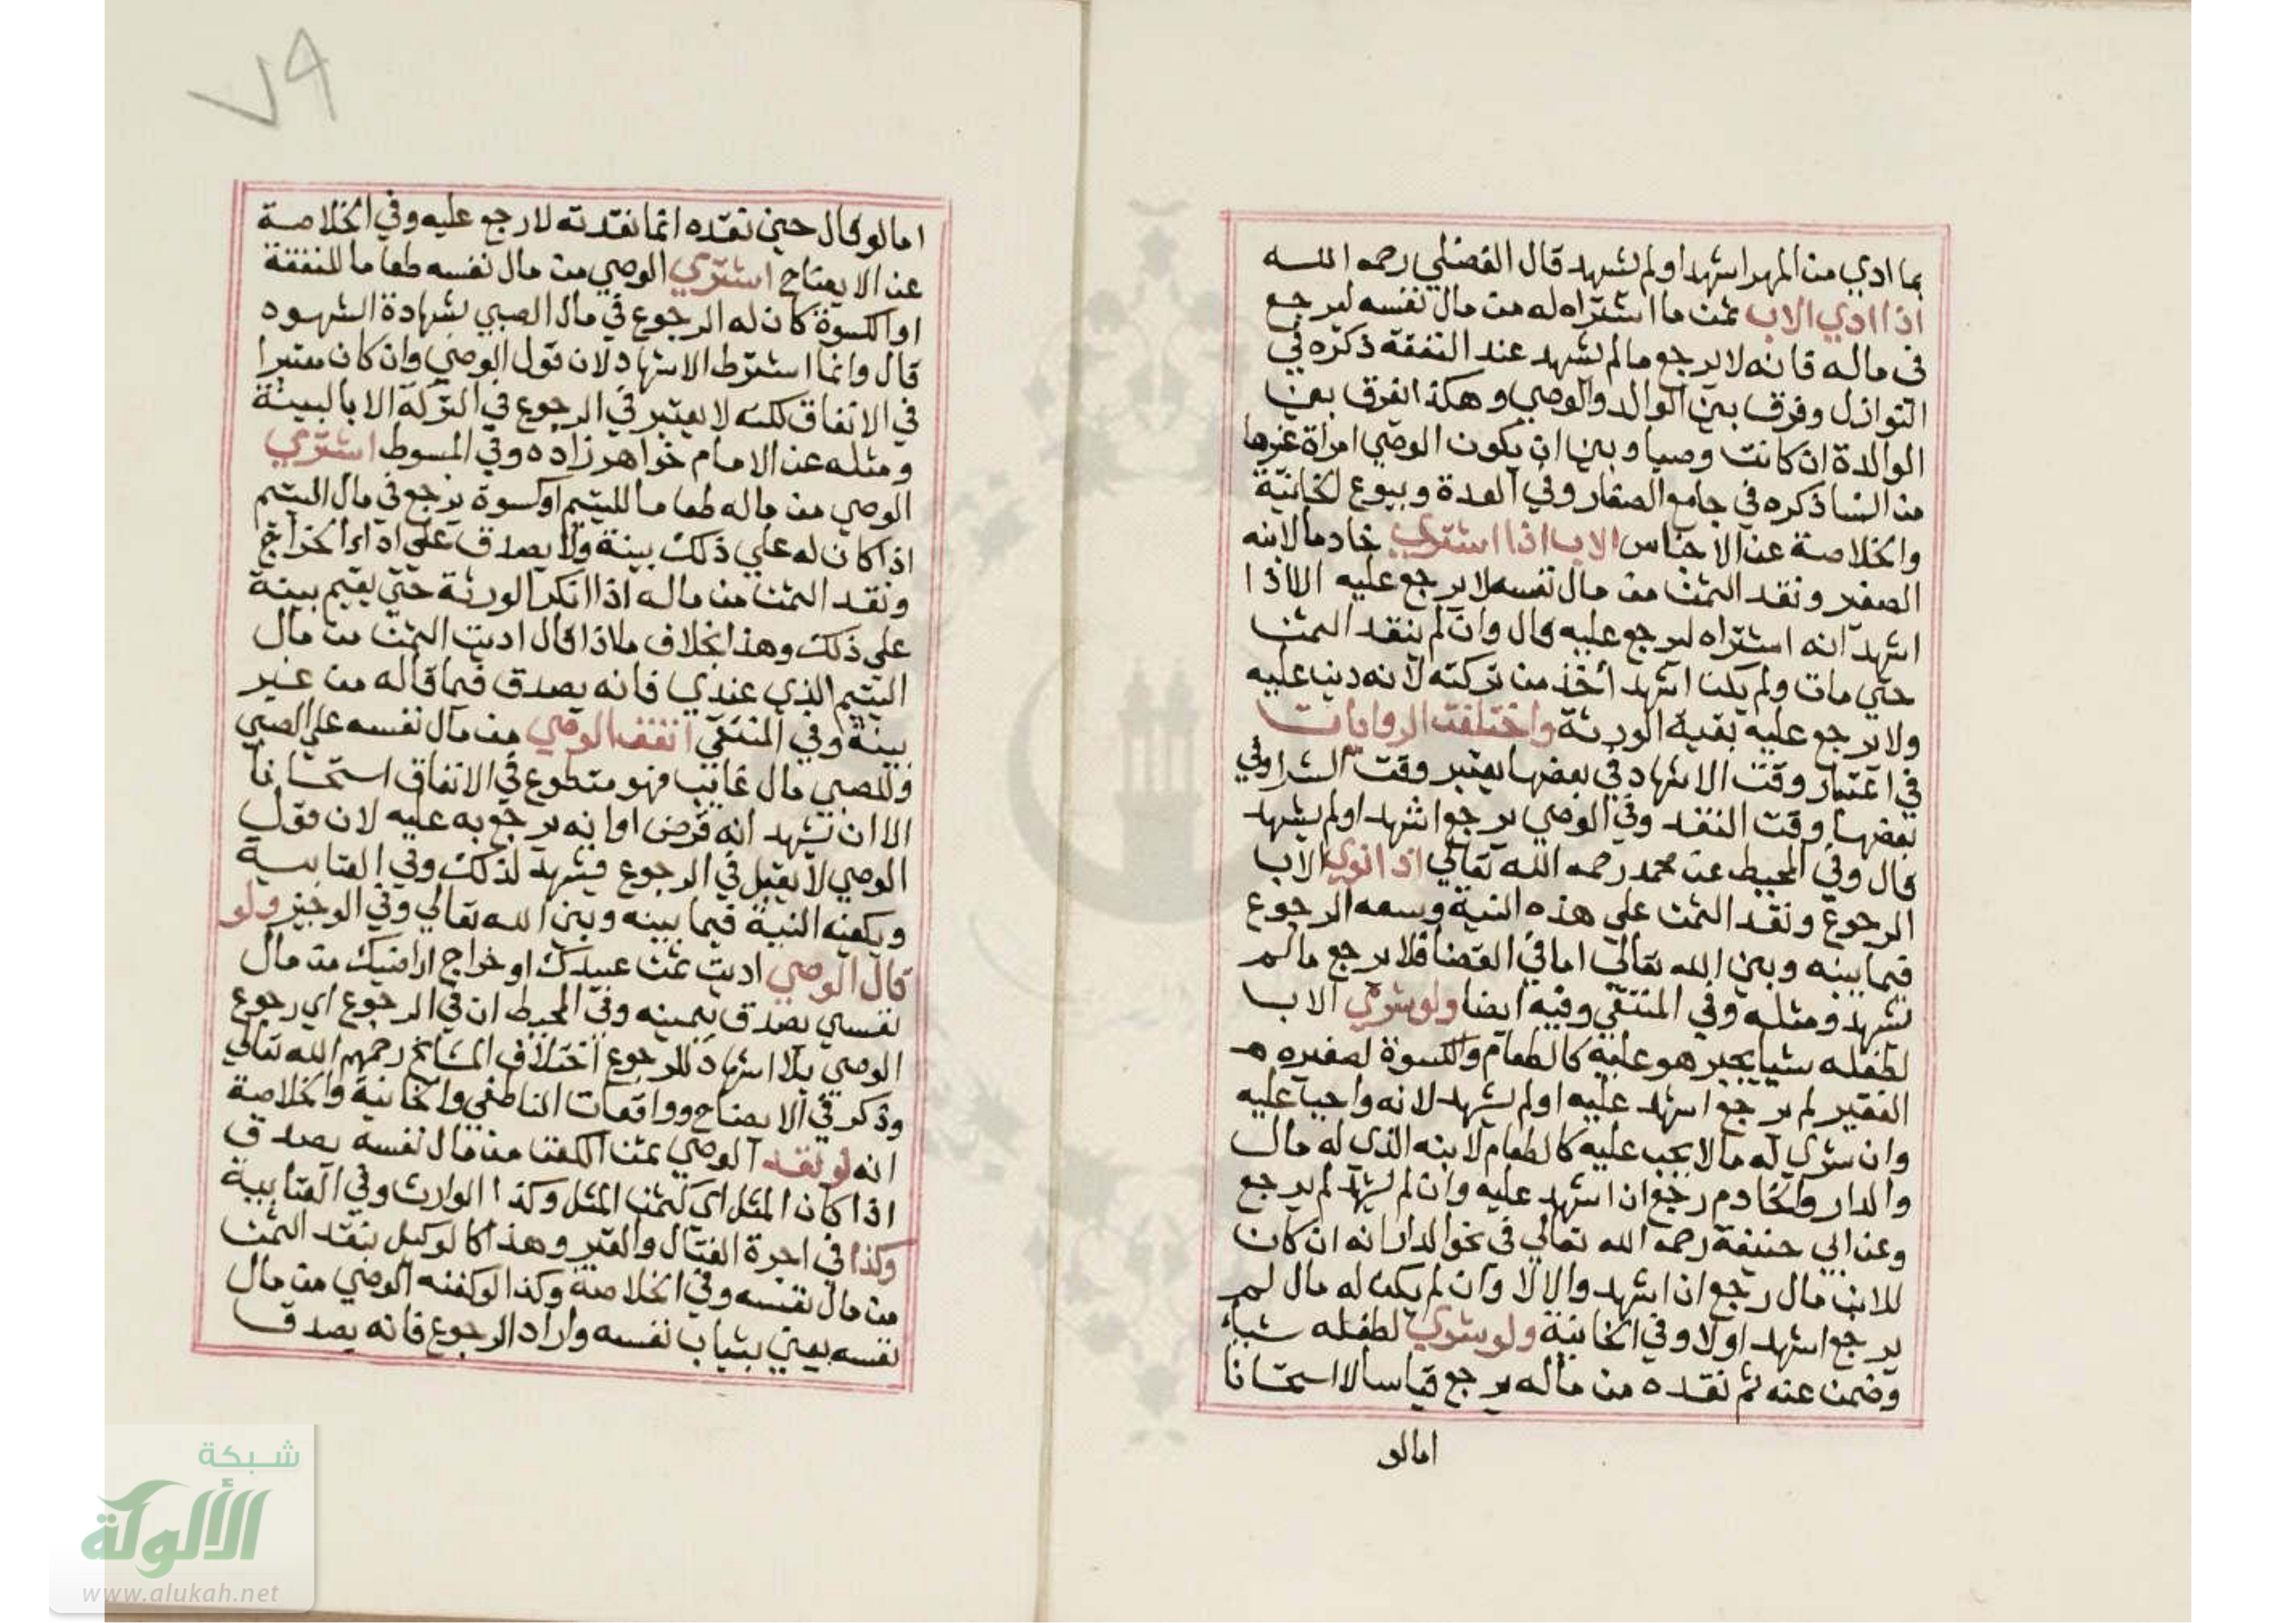 بما ادي من المهر اشهد او لم يشهد قال الفضلي رحمه الله
اذا ادي الاب ثمن ما اشتراه له من مال نفسه ليرجع
في ماله فانه لا يرجع ما لم يشهد عند النفقة ذكره في
النوازل وفرق بين الوالد والوصي وهكذا الفرق بين
الوالدة ان كانت وصيا وبين ان يكون الوصي امراة غيرها
من النسا ذكره في جامع الصغار وفي العدة وبيوع الخانية
والخلاصة عن الاجناس الاب اذا اشتري خادما لابنه
الصغير ونقد الثمن من مال نفسه لا يرجع عليه الا اذا
اشهد انه اشتراه ليرجع عليه قال وان لم ينقد الثمن
حتي مات ولم يكن اشهد أخذ من تركته لانه دين عليه
ولا يرجع عليه بقية الورثة واختلفت الروايات
في اعتبار وقت الاشهاد في بعضها يعتبر وقت الشرا وفي
بعضها وقت النقد وفي الوصي يرجع اشهد او لم يشهد
قال وفي المحيط عن محمد رحمه الله تعالي اذا نوي الاب
الرجوع ونقد الثمن علي هذه النية وسعه الرجوع
فيما بينه وبين الله تعالي اما في القضا فلا يرجع ما لم
يشهد ومثله وفي المنتقي وفيه ايضا ولو شري الاب
لطفله شيا يجبر هو عليه كالطعام والكسوة لصغيره
الفقير لم يرجع اشهد عليه او لم يشهد لانه واجب عليه
وان شري له ما لا يجب عليه كالطعام لابنه الذي له مال
والدار والخادم رجع ان اشهد عليه وان لم يشهد لم يرجع
وعن ابي حنيفة رحمه الله تعالي في نحو الدار انه ان كان
للابن مال رجع ان اشهد والا لا وان لم يكن له مال لم
يرجع اشهد او لا وفي الخانية ولو شري لطفله شيا
وضمن عنه ثم نقده من ماله يرجع قياسا لا استحسانا
امالو
٧٩
امالو قال حين نقده انما نقدته لارجع عليه وفي الخلاصة
عن الايضاح اشتري الوصي من مال نفسه طعاما للنفقة
او الكسوة كان له الرجوع في مال الصبي بشهادة الشهود
قال وانما اشترط الاشهاد لان قول الوصي وان كان معتبرا
في الانفاق لكنه لا يعتبر في الرجوع في التركة الا بالبينة
ومثله عن الامام خواهر زاده وفي المبسوط اشتري
الوصي من ماله طعاما لليتيم او كسوة يرجع في مال اليتيم
اذا كان له علي ذلك بينة ولا يصدق علي اداء الخراج
ونقد الثمن من ماله اذا انكر الورثة حتي يقيم بينة
علي ذلك وهذا بخلاف ما اذا قال اديت الثمن من مال
اليتيم الذي عندي فانه يصدق فيما قاله من غير
بينة وفي المنتقي انفق الوصي من مال نفسه علي الصبي
وللصبي مال غائب فهو متطوع في الانفاق استحسانا
الا ان يشهد انه قرض او انه يرجع به عليه لان قول
الوصي لا يقبل في الرجوع فيشهد لذلك وفي العتابية
ويكفيه النية فيما بينه وبين الله تعالي وفي الوجيز ولو
قال الوصي اديت ثمن عبيدك او خراج اراضيك من مال
نفسي يصدق بيمينه وفي المحيط ان في الرجوع اي رجوع
الوصي بلا اشهاد للرجوع اختلاف المشايخ رحمهم الله تعالي
وذكر في الايضاح وواقعات الناطفي والخانية والخلاصة
انه لو نقد الوصي ثمن الكفن من مال نفسه يصدق
اذا كان المثل اي كثمن المثل وكذا الوارث وفي العتابية
وكذا في اجرة الغسال والقبر وهذا كالوكيل ينقد الثمن
من مال نفسه وفي الخلاصة وكذا لو كفنه الوصي من مال
نفسه يعني بثياب نفسه واراد الرجوع فانه يصدق
شبكة
الألوكة
www.alukah.net